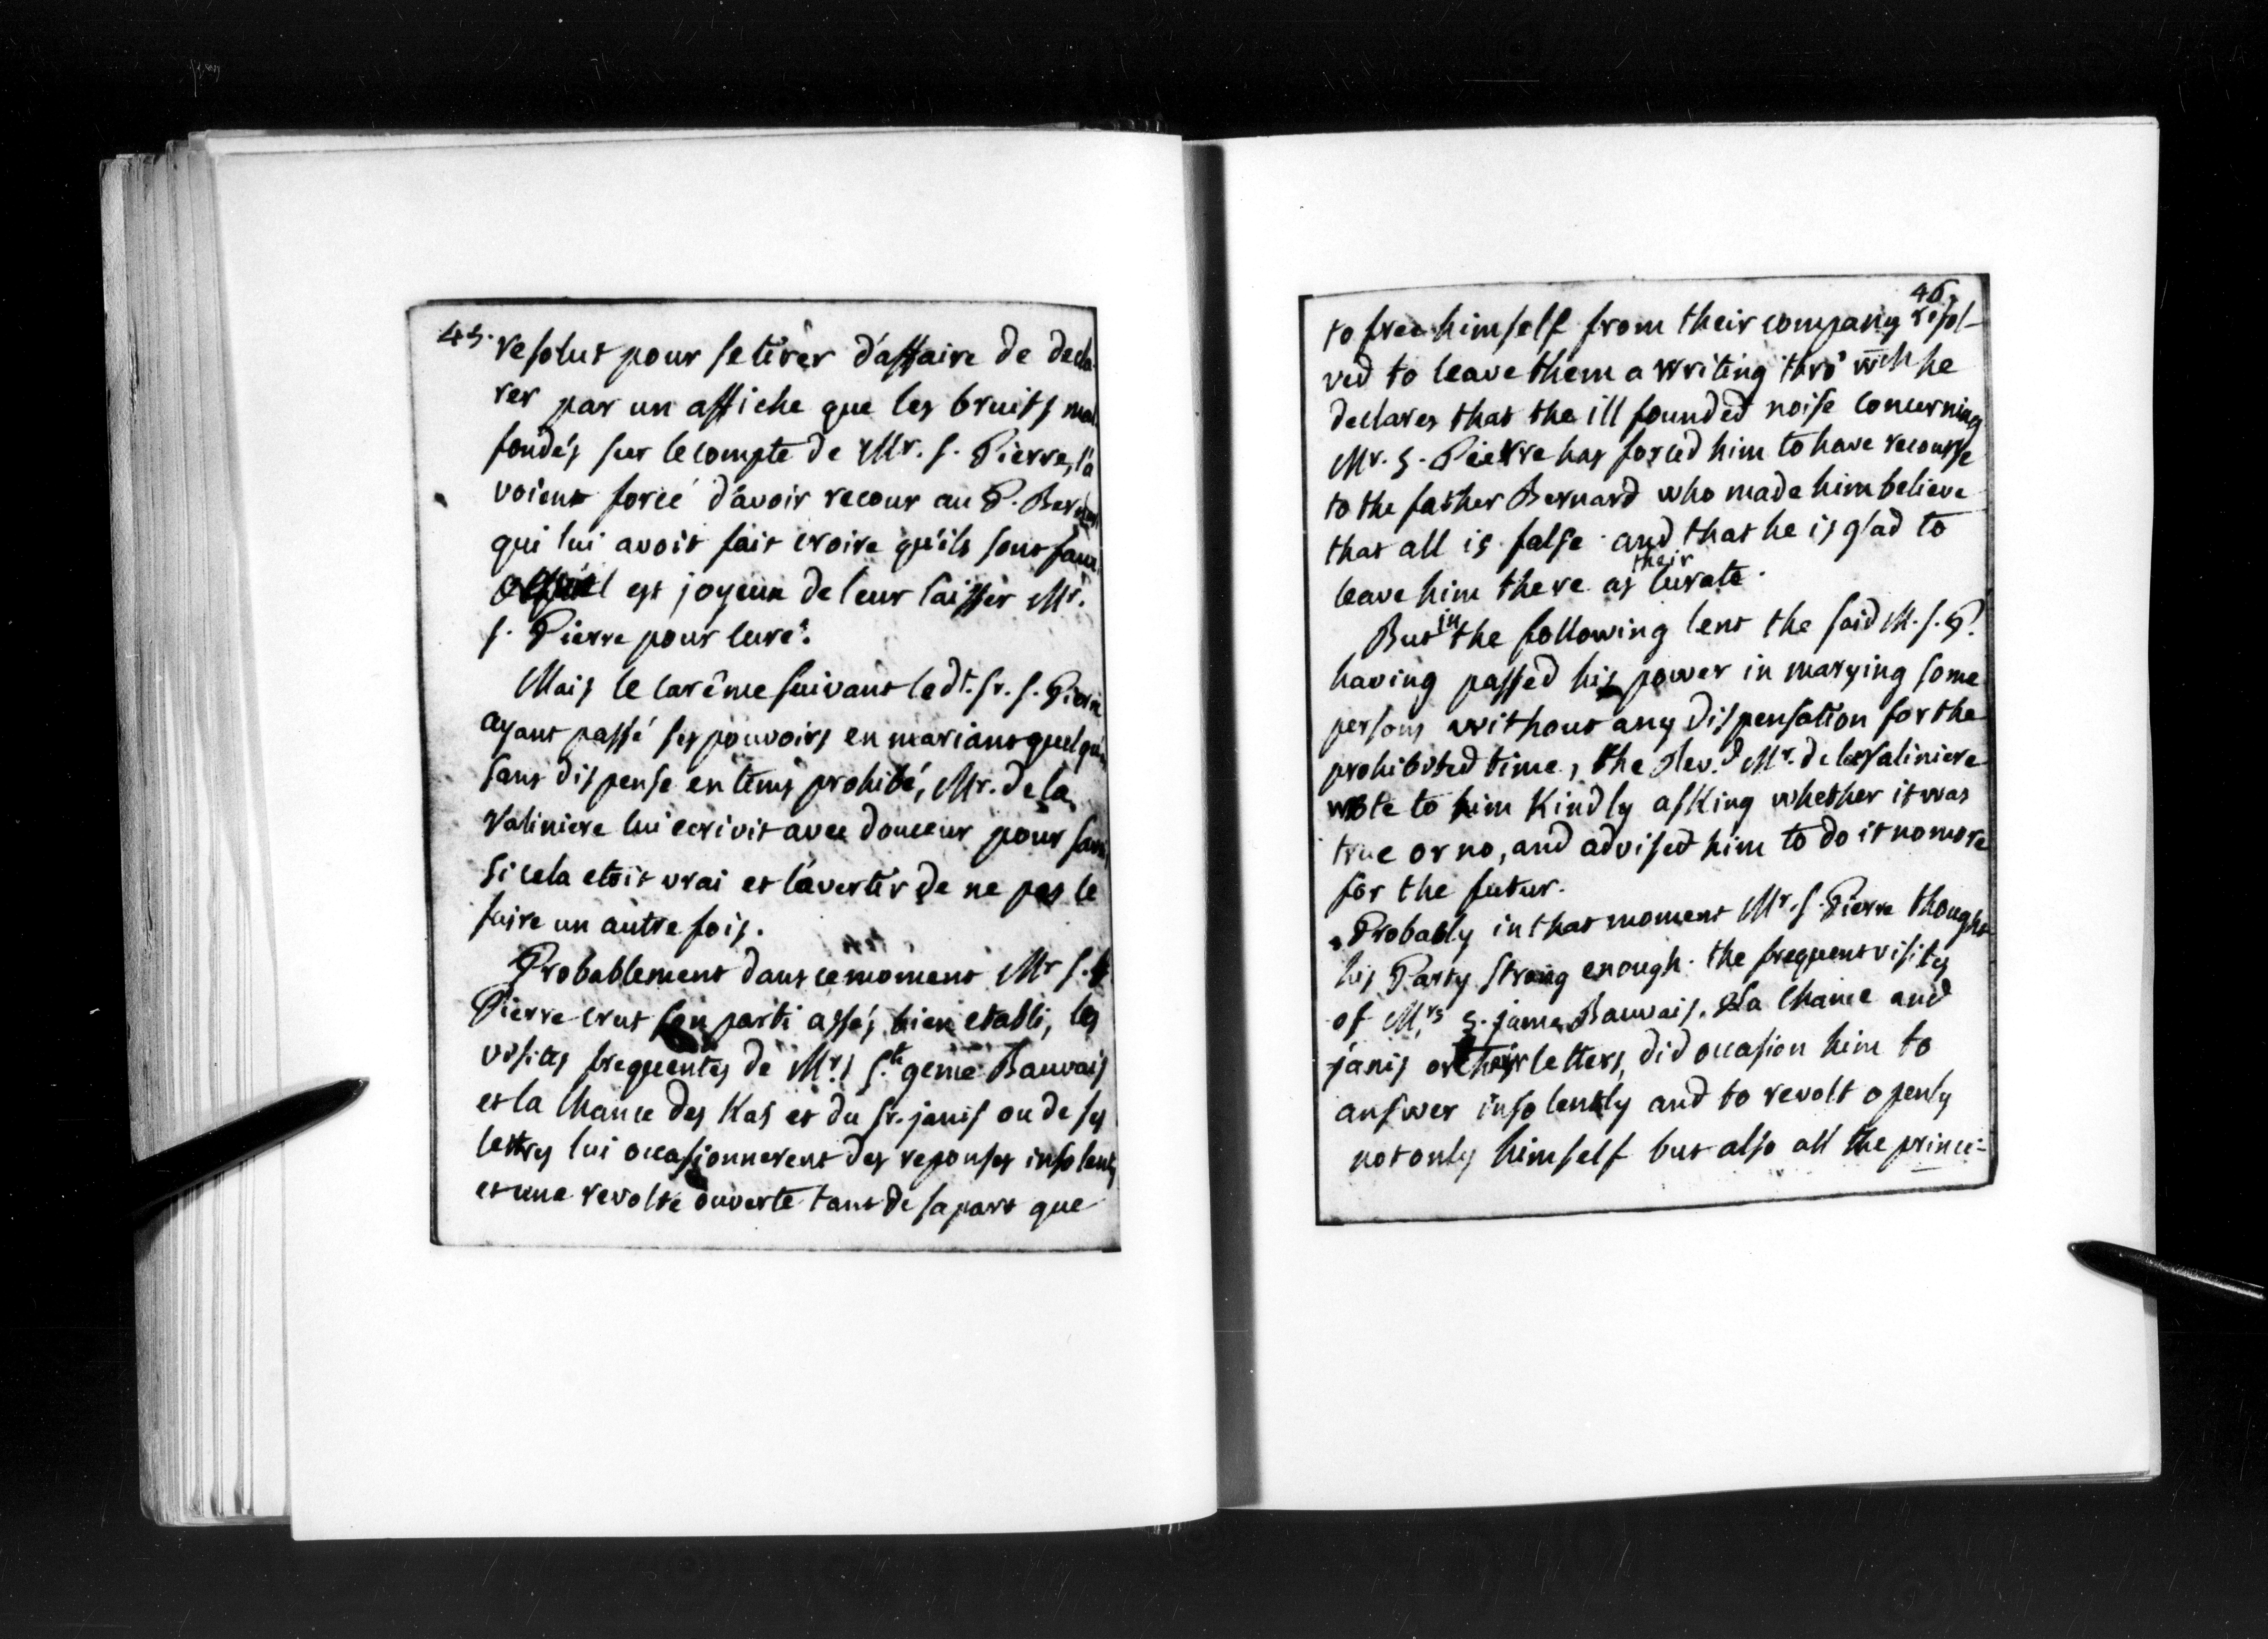 45.
resolut pour se tirer d'affaire de decla-
rer par un affiche que les bruits mal
fondés sur le compte de Mr. S. Pierre, l'a
voient forcé d'avoir recour au P. Bernard
qui lui avoit fait croire qu'ils sont faux
est joyeux de leur laisser Mr.
S. Pierre pour curé.
Mais le carême suivant led.t Sr. S. Pierre
ayant passé ses pouvoirs en mariant quelqu'un
sans dispense en tems prohibé, Mr. de la
Valiniere lui ecrivit avec douceur pour savoir
si cela etoit vrai et l'avertir de ne pas le
faire un autre fois.
Probablement dans ce moment Mr S.
Pierre crut son parti assés bien etabli, les
visites frequentes de Mrs S.te geme Bauvais
et la Chance des Kas et du Sr. janis ou de ses
lettres lui occasionnerent des reponses insolentes
et une revolte ouverte tant de sa part que
46.
to free himself from their company resol-
ved to leave them a writing thro' wich he
declares that the ill founded noise concerning
Mr. S. Pierre has forced him to have recourse
to the father Bernard who made him believe
that all is false and that he is glad to
leave him there as their curate.
But in the following lent the said M. S. P.
having passed his power in marying some
persons without any dispensation for the
prohibited time, the Rev.d Mr. de la Valiniere
wrote to him Kindly asKing whether it was
true or no, and advised him to do it no more
for the futur.
Probably in that moment Mr. S. Pierre thought
his Party strong enough. the frequent visits
of M.rs S. jame Bauvais. La Chance and
janis or their letters, did occasion him to
answer insolently and to revolt openly
not only himself but also all the princi-